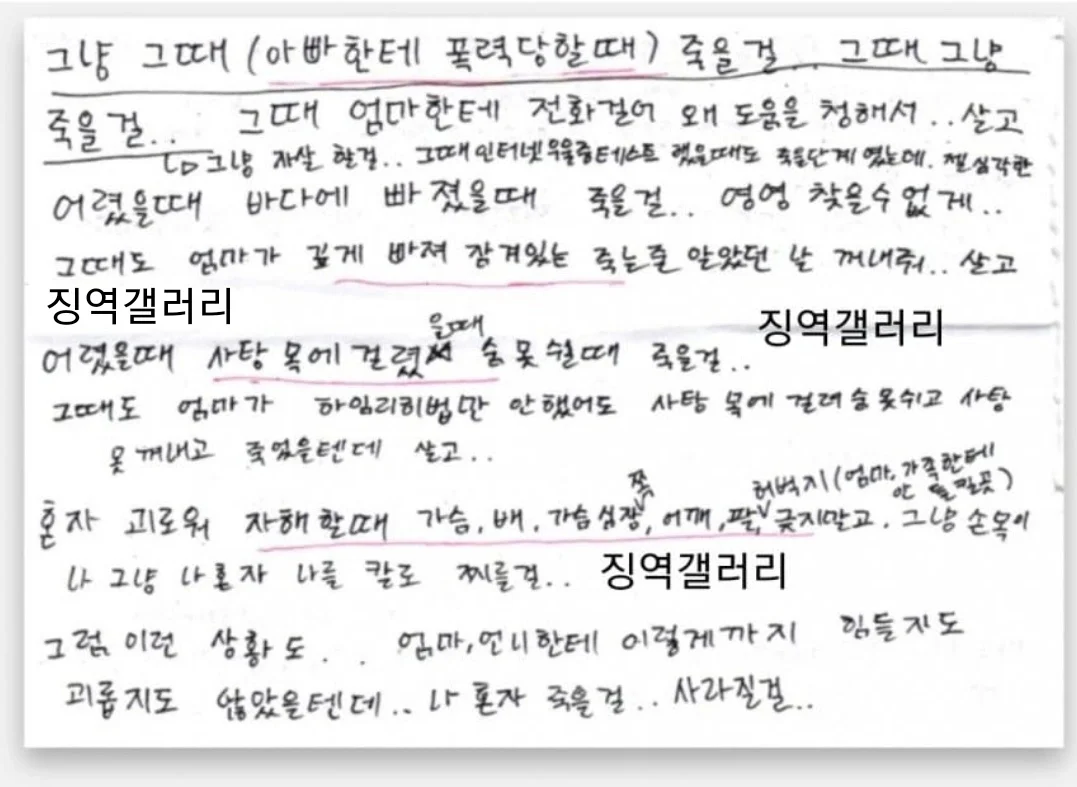 그냥 그때 (아빠한테 폭력당할때) 죽을걸.. 그때 그냥
죽을걸.. 그때 엄마한테 전화걸어 왜 도움을 청해서.. 살고
↳ 그냥 자살 할걸.. 그때인터넷우울증테스트 했을때도 죽을단계였는데. 젤심각한
어렸을때 바다에 빠졌을때 죽을걸.. 영영 찾을수없게..
그때도 엄마가 깊게 빠져 잠겨있는 죽는줄 알았던 날 꺼내줘.. 살고
징역갤러리
징역갤러리
을때
어렸을때 사탕 목에 걸렸 숨못쉴때 죽을걸..
그때도 엄마가 하임리히법만 안했어도 사탕 목에 걸려숨못쉬고 사탕
못꺼내고 죽었을텐데 살고..
쪽
허벅지(엄마,가족한테
안 띌곳)
혼자 괴로워 자해할때 가슴,배,가슴심장,어깨,팔,긎지말고, 그냥 손목이
나 그냥 나혼자 나를 칼로 찌를걸..
징역갤러리
그럼, 이런 상황도.. 엄마,언니한테 이렇게까지 힘들지도
괴롭지도 않았을텐데.. 나 혼자 죽을걸.. 사라질걸..